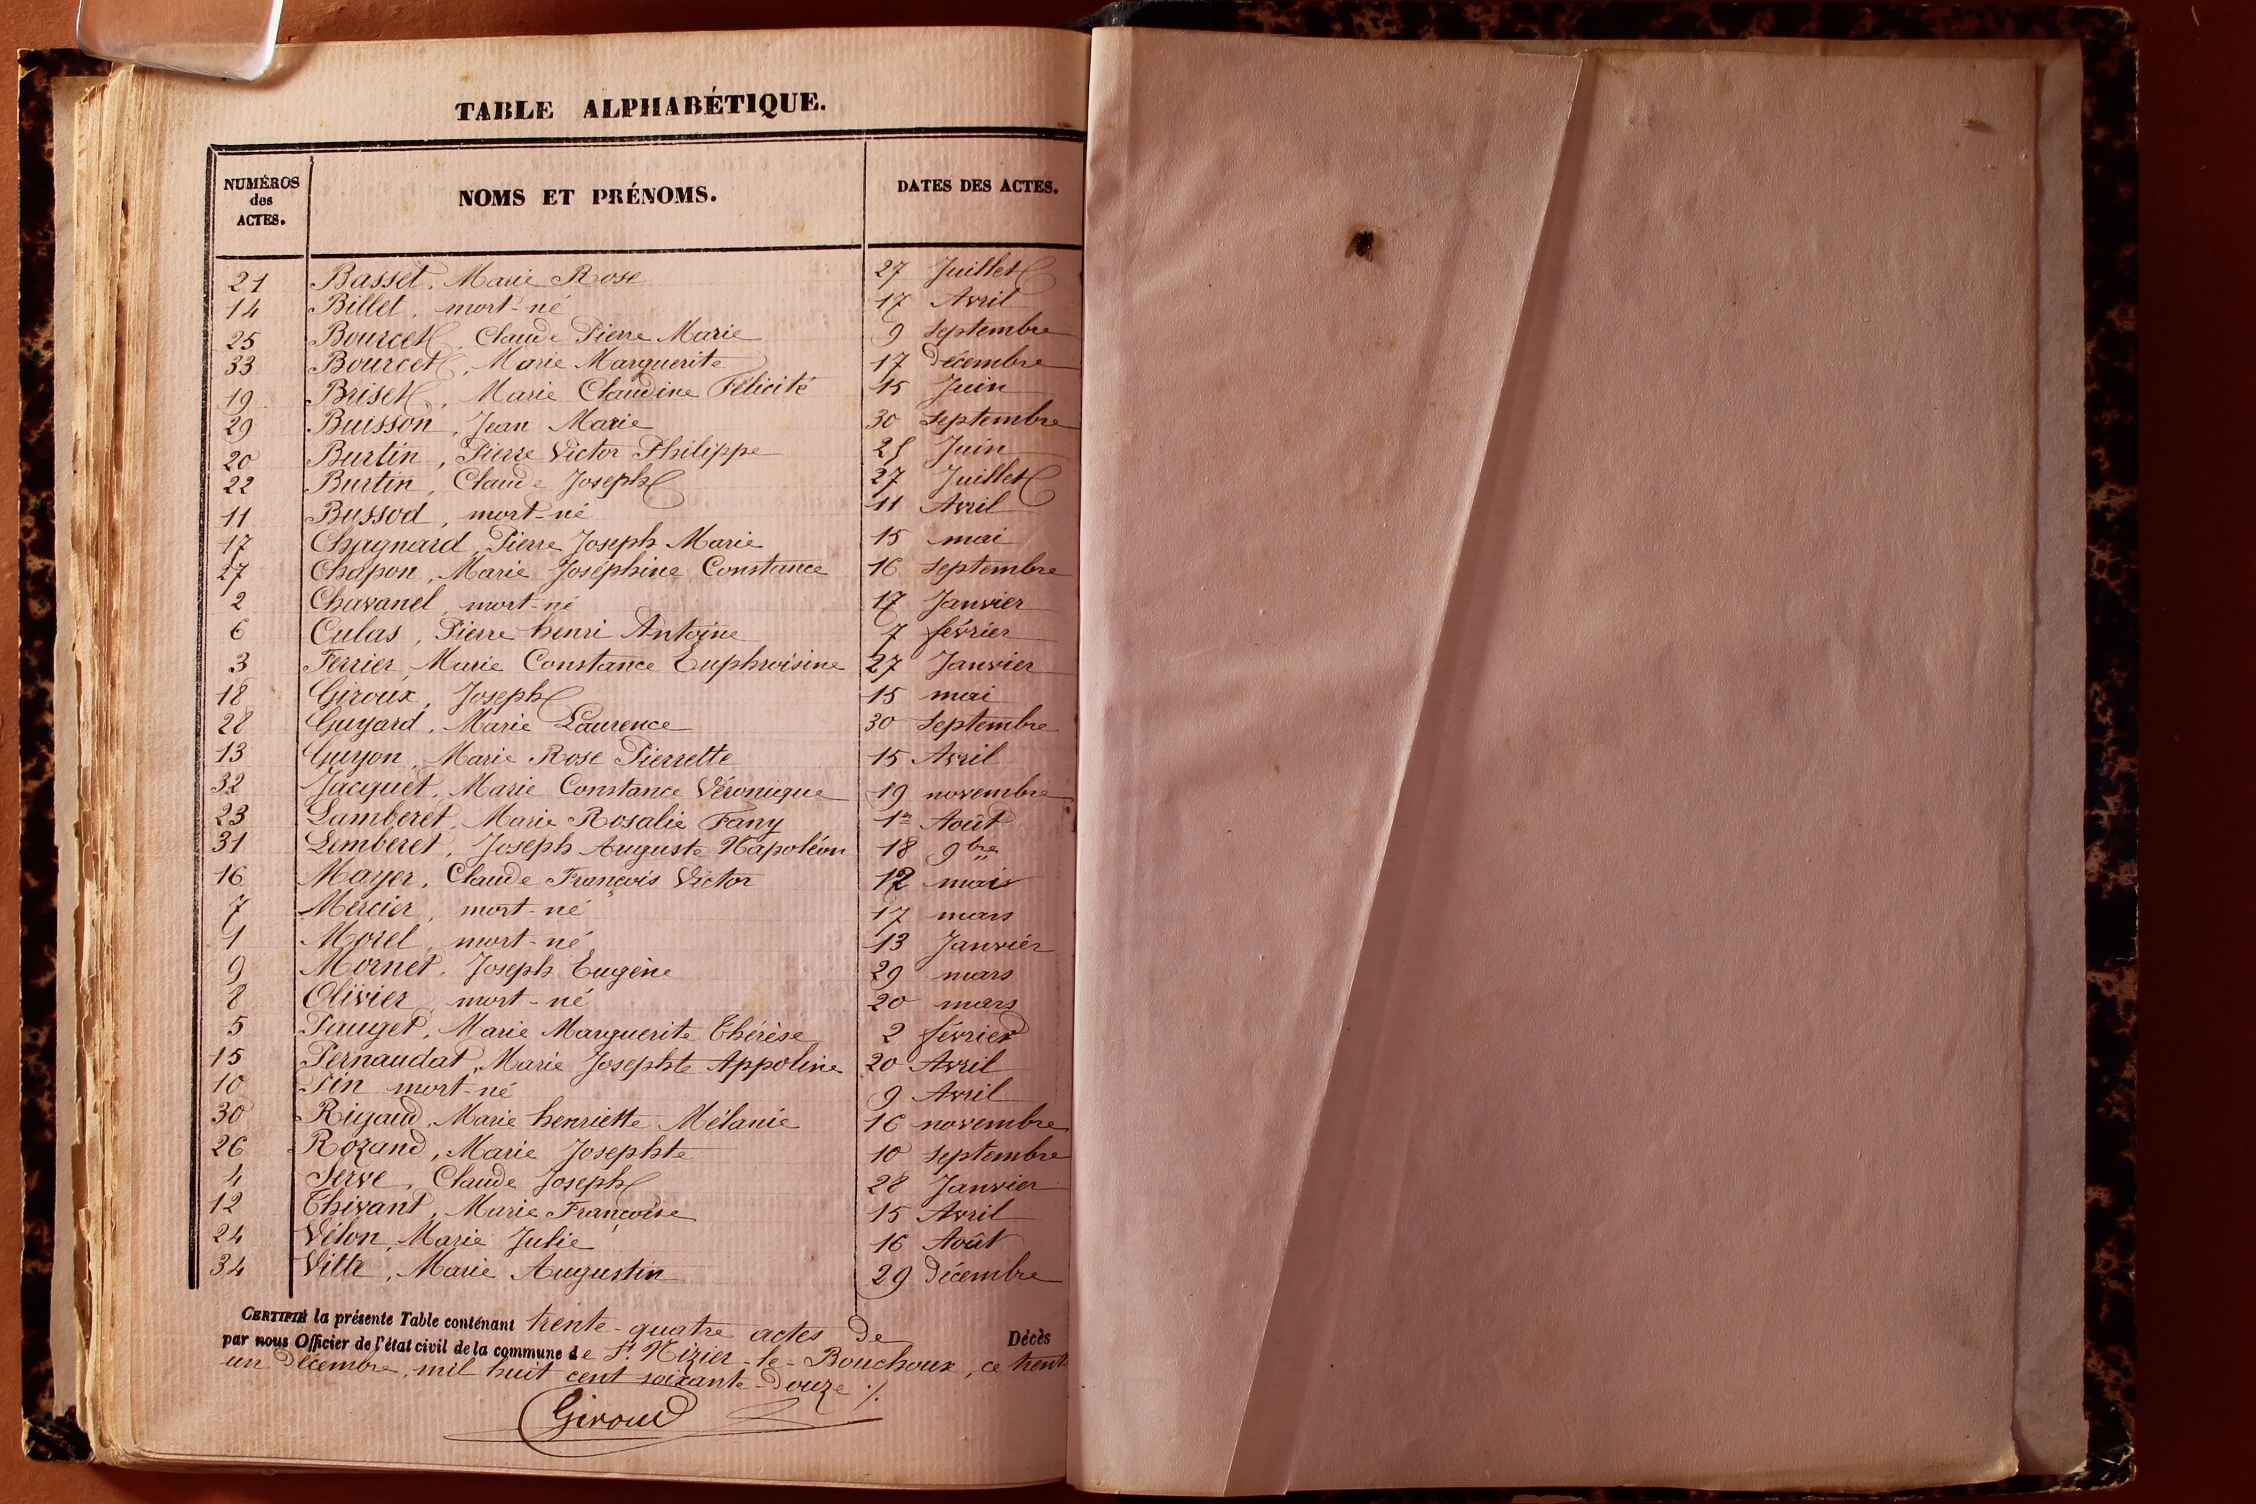 TABLE ALPHABÉTIQUE.
NUMÉROS des ACTES. NOMS ET PRÉNOMS. DATES DES ACTES.
21 Basset, Marie Rose 27 Juillet
14 Billet, mort-né 17 Avril
25 Bourcet, Claude Pierre Marie 9 Septembre
33 Bourcet, Marie Marguerite 17 Décembre
19 Briset, Marie Claudine Félicité 15 Juin
29 Buisson, Jean Marie 30 Septembre
20 Burtin, Pierre Victor Philippe 25 Juin
22 Burtin, Claude Joseph 27 Juillet
11 Bussod, mort-né 11 Avril
17 Chagnard, Pierre Joseph Marie 15 mai
27 Chapon, Marie Joséphine Constance 16 Septembre
2 Chavanel, mort-né 17 Janvier
6 Culas, Pierre henri Antoine 7 février
3 Ferrier, Marie Constance Euphroisine 27 Janvier
18 Giroux, Joseph 15 mai
28 Guyard, Marie Laurence 30 Septembre
13 Guyon, Marie Rose Pierrette 15 Avril
32 Jacquet, Marie Constance Véronique 19 novembre
23 Lamberet, Marie Rosalie Fany 1er Août
31 Lemberet, Joseph Auguste Napoléon 18 9bre
16 Mayer, Claude François Victor 12 mai
7 Mercier, mort-né 17 mars
1 Morel, mort-né 13 Janvier
9 Mornet, Joseph Eugène 29 mars
8 Olivier, mort-né 20 mars
5 Pauget, Marie Marguerite Thérèse 2 février
15 Pernaudat, Marie Josephte Appoline 20 Avril
10 Pin mort-né 9 Avril
30 Rigaud, Marie henriette Mélanie 16 novembre
26 Rozand, Marie Josephte 10 Septembre
4 Serve, Claude Joseph 28 Janvier
12 Thivant, Marie Françoise 15 Avril
24 Vélon, Marie Julie 16 Août
34 Vitte, Marie Augustin 29 Décembre
CERTIFIÉ la présente Table contenant trente-quatre actes de Décès
par nous Officier de l'état civil de la commune de St. Nizier-le-Bouchoux, ce trente
un Décembre, mil huit cent soixante-Douze %.
Giroud